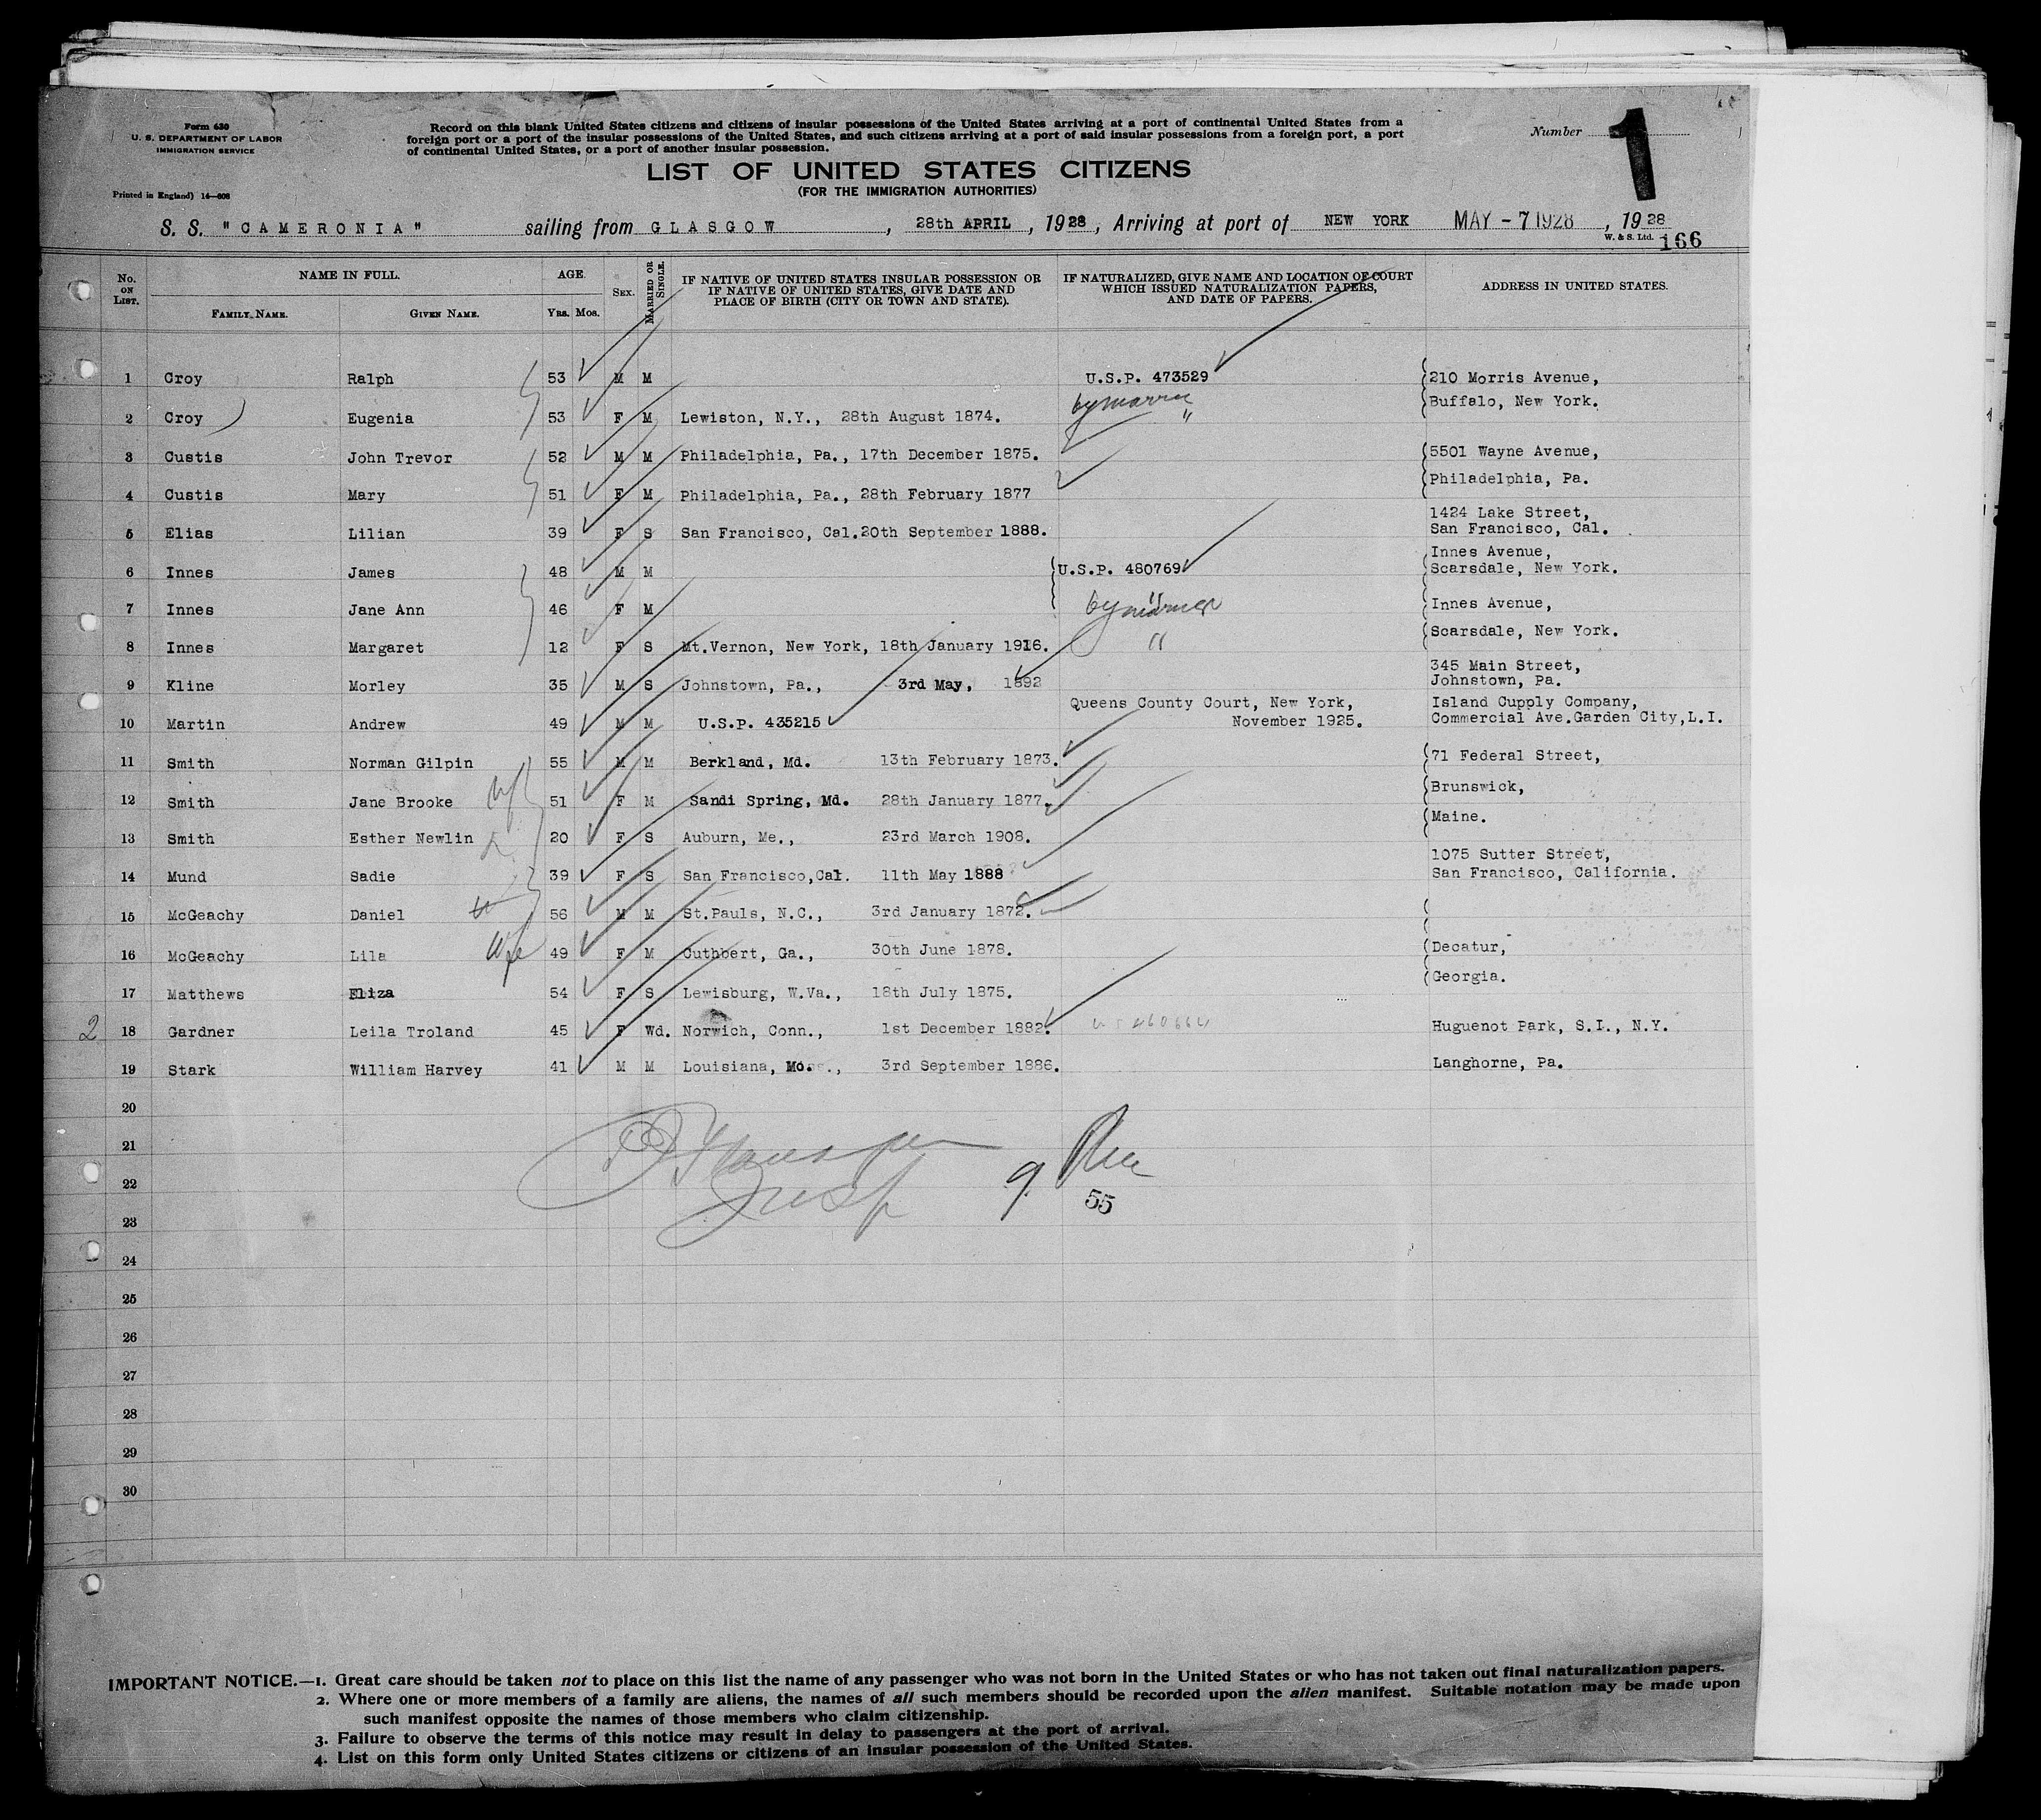 Form 630
U. S. DEPARTMENT OF LABOR
IMMIGRATION SERVICE
Printed in England) 14—608
Record on this blank United States citizens and citizens of insular possessions of the United States arriving at a port of continental United States from a
foreign port or a port of the insular possessions of the United States, and such citizens arriving at a port of said insular possessions from a foreign port, a port
of continental United States, or a port of another insular possession.
Number 1
LIST OF UNITED STATES CITIZENS
(FOR THE IMMIGRATION AUTHORITIES)
S. S. "CAMERONIA" sailing from GLASGOW, 28th APRIL, 1928, Arriving at port of NEW YORK MAY - 7 1928, 1928
W. & S. Ltd. 166
No. ON LIST. NAME IN FULL. FAMILY NAME. GIVEN NAME. AGE. YRS. MOS. SEX. MARRIED OR SINGLE. IF NATIVE OF UNITED STATES INSULAR POSSESSION OR IF NATIVE OF UNITED STATES, GIVE DATE AND PLACE OF BIRTH (CITY OR TOWN AND STATE). IF NATURALIZED, GIVE NAME AND LOCATION OF COURT WHICH ISSUED NATURALIZATION PAPERS, AND DATE OF PAPERS. ADDRESS IN UNITED STATES.
1 Croy Ralph 53 M M U.S.P. 473529 210 Morris Avenue,
Buffalo, New York.
2 Croy Eugenia 53 F M Lewiston, N.Y., 28th August 1874. "
3 Custis John Trevor 52 M M Philadelphia, Pa., 17th December 1875. 5501 Wayne Avenue,
Philadelphia, Pa.
4 Custis Mary 51 F M Philadelphia, Pa., 28th February 1877
5 Elias Lilian 39 F S San Francisco, Cal. 20th September 1888. 1424 Lake Street,
San Francisco, Cal.
6 Innes James 48 M M U.S.P. 480769 Innes Avenue,
Scarsdale, New York.
7 Innes Jane Ann 46 F M " Innes Avenue,
Scarsdale, New York.
8 Innes Margaret 12 F S Mt.Vernon, New York, 18th January 1916. "
9 Kline Morley 35 M S Johnstown, Pa., 3rd May, 1892 345 Main Street,
Johnstown, Pa.
10 Martin Andrew 49 M M U.S.P. 435215 Queens County Court, New York,
November 1925. Island Cupply Company,
Commercial Ave.Garden City,L.I.
11 Smith Norman Gilpin 55 M M Berkland, Md. 13th February 1873. 71 Federal Street,
12 Smith Jane Brooke 51 F M Sandi Spring, Md. 28th January 1877. Brunswick,
Maine.
13 Smith Esther Newlin 20 F S Auburn, Me., 23rd March 1908.
14 Mund Sadie 39 F S San Francisco,Cal. 11th May 1888 1075 Sutter Street,
San Francisco, California.
15 McGeachy Daniel 56 M M St.Pauls, N.C., 3rd January 1872.
16 McGeachy Lila Wife 49 F M Cuthbert, Ga., 30th June 1878. Decatur,
Georgia.
17 Matthews Eliza 54 F S Lewisburg, W.Va., 18th July 1875.
2 18 Gardner Leila Troland 45 F Wd. Norwich, Conn., 1st December 1882. Huguenot Park, S.I., N.Y.
19 Stark William Harvey 41 M M Louisiana, Mo., 3rd September 1886. Langhorne, Pa.
20
21
22
55
23
24
25
26
27
28
29
30
IMPORTANT NOTICE.—1. Great care should be taken not to place on this list the name of any passenger who was not born in the United States or who has not taken out final naturalization papers.
2. Where one or more members of a family are aliens, the names of all such members should be recorded upon the alien manifest. Suitable notation may be made upon
such manifest opposite the names of those members who claim citizenship.
3. Failure to observe the terms of this notice may result in delay to passengers at the port of arrival.
4. List on this form only United States citizens or citizens of an insular possession of the United States.